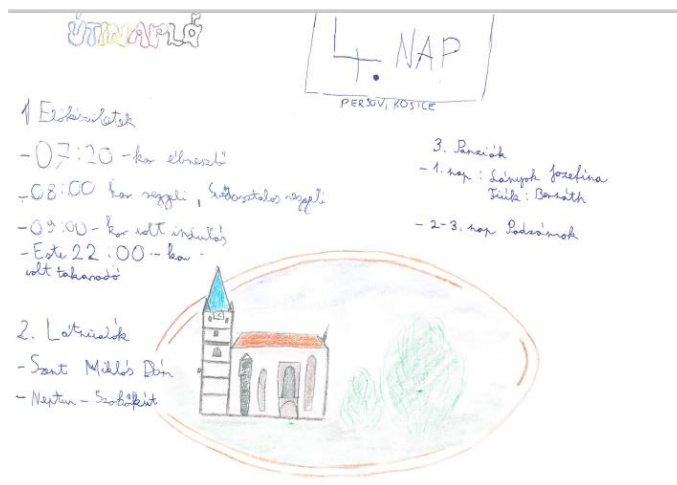 ÚTINAPLÓ
4. NAP
PERSOV, KOSICE
1 Előkészületek
- 07:20 - kor ébresztő
- 08:00 kor reggeli, Svédasztalos reggeli
- 09:00 - kor volt indulás
- Este 22:00 - kor
volt takarodó
2. Látnivalók
- Szent Miklós Dóm
- Neptun - Szökőkút
3. Panziók
- 1. nap : Lányok Jozefina
Fiúk : Bernáth
- 2-3. nap